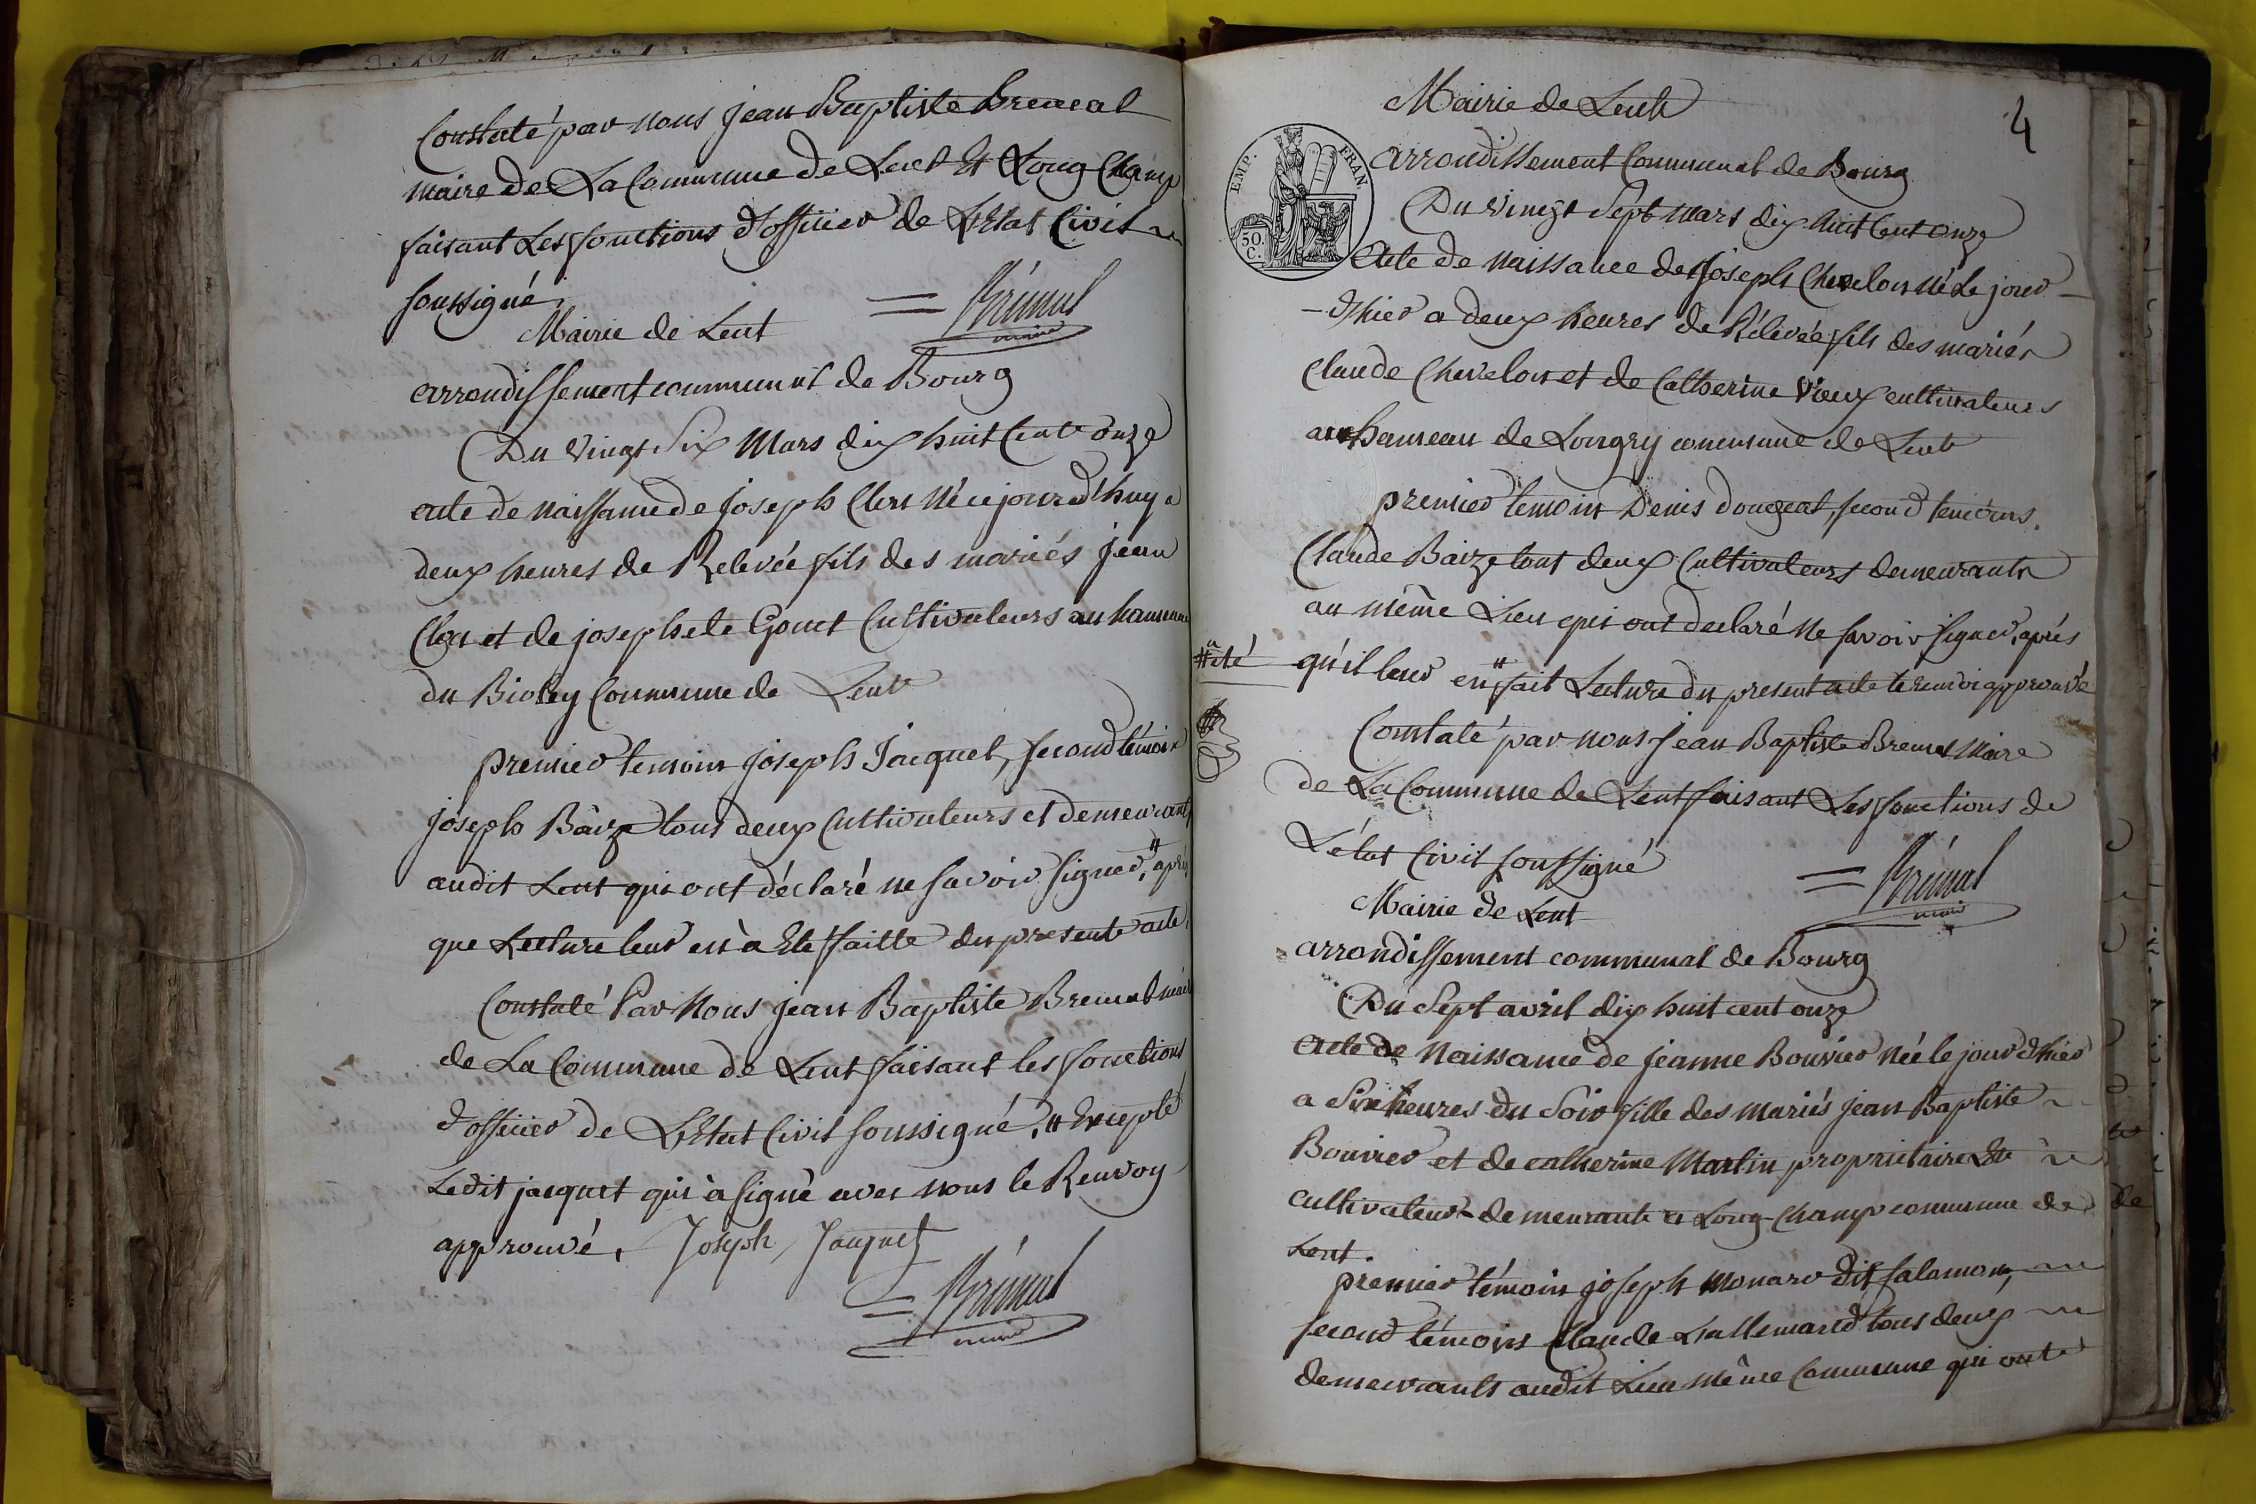 Constaté par nous jean Baptiste Bremal
maire de La Commune de Lent Et Long Champ
faisant Les fonctions d'officier de L'Etat Civil
soussigné
= Brémal
maire
Mairie de Lent
arrondissement communal de Bourg
Du vingt Six Mars dix huit Cent onze
acte de naissance de joseph Clerc Né cejourd'huy a
deux heures de Relevée fils des mariés jean
Clerc et de josephete Gonet Cultivateurs au hameau
du Bioley Commune de Lent
premier temoin joseph Jacquet, second témoin
joseph Baize tous deux Cultivateurs et demeurant
audit Lent qui ont déclaré ne savoir signer, # après
que Lecture leur en à Eté faitte du presente acte.
Constaté Par Nous jean Baptiste Bremal maire
de La Commune de Lent faisant les fonctions
d'officier de L'Etat Civil soussigné. # Excepté
Ledit jacquet qui à signé avec nous le Renvoy
approuvé. Joseph Jacquet
= Brémal
maire
4
Mairie de Lent
EMP. FRAN.
50.
C.
arrondissement Communal de Bourg
Du vingt Sept mars dix huit Cent onze
Acte de naissance de joseph Chevelon né Le jour
d'hier a deux heures de Rélevée fils des mariés
Claude Chevelon et de Catherine Vieux cultivateurs
au hameau de Longry commune de Lent
premier temoin Denis dougeat, second temoins.
Claude Baize tout deux Cultivateurs demeurants
au même Lieu qui ont declaré ne savoir signer, après
# a été
qu'il leur en # fait Lecture du present acte le renvoi approuvé
Constaté par nous jean Baptiste Bremal Maire
de La Commune de Lent faisant Les fonctions de
L'état Civil soussigné
= Brémal
maire
Mairie de Lent
arrondissement communal de Bourg
Du Sept avril dix huit cent onze
acte de naissance de jeanne Bouvier née le jour d'hier
a Six heures du Soir fille des mariés jean Baptiste
Bouvier et de catherine Martin proprietaire Et
cultivateur demeurants a Long-Champ commune de
Lent.
premier témoin joseph monard dit salamon,
second témoins Claude Lallemand tous deux
demeurants audit Lieu même Commune qui ont